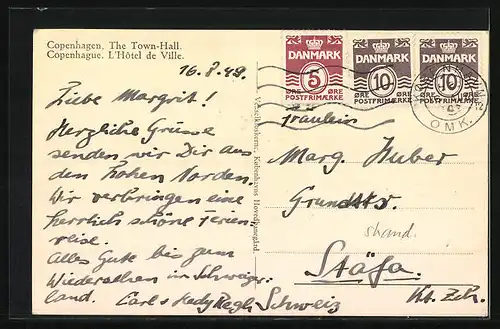 Copenhagen. The Town-Hall.
Copenhague. L'Hôtel de Ville.
16.8.49.
Liebe Margrit!
Herzliche Grüsse
senden wir Dir aus
dem hohen Norden.
Wir verbringen eine
herrlich schöne Ferien-
reise.
Alles Gute bis zum
Wiedersehen im Schweizer-
land. Carl + Hedy
Vinselboskernc, Københavns Hovedbanegård.
DANMARK
5
ØRE ØRE
POSTFRIMÆRKE
DANMARK
10
ØRE ØRE
POSTFRIMÆRKE
DANMARK
10
ØRE ØRE
POSTFRIMÆRKE
OMK.
Fräulein
Marg. Huber
Grundstr.
Stäfa.
Kt. Zch.
Schweiz